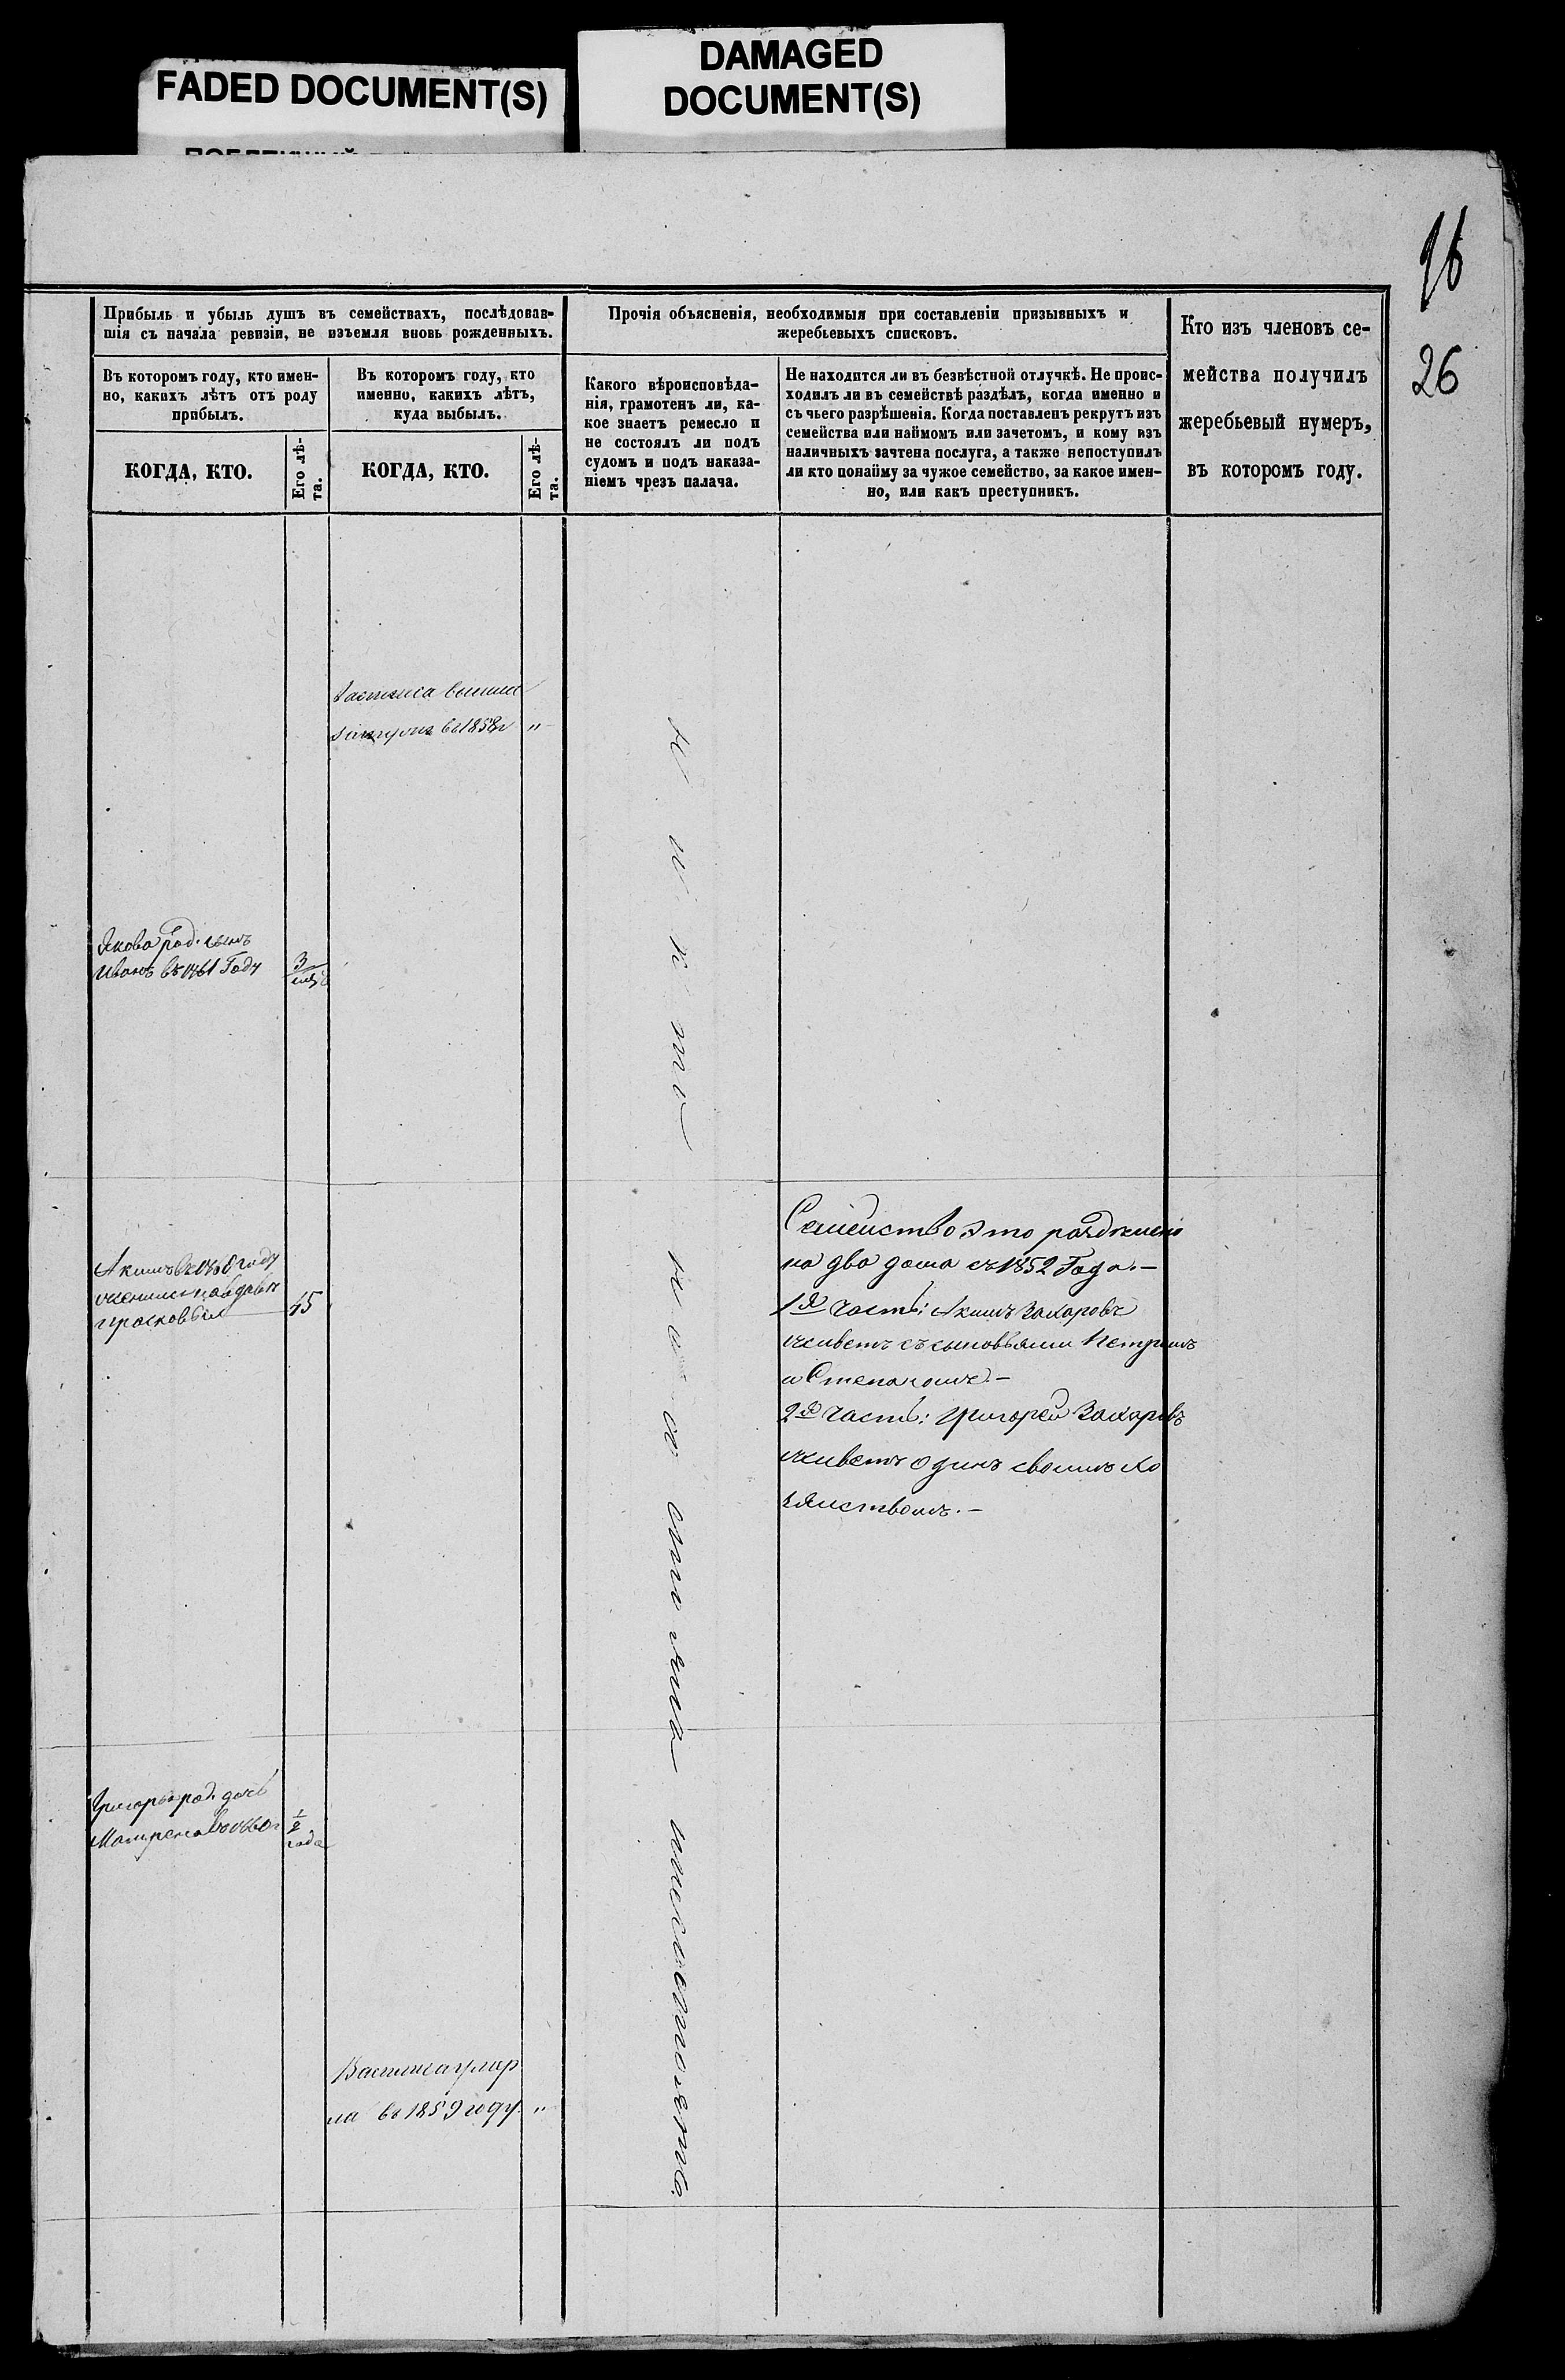 FADED DOCUMENT(S)
DAMAGED
DOCUMENT(S)
96
26
Прибыль и убыль душъ въ семействахъ, послѣдовав-
шія съ начала ревизіи, не изъемля вновь рожденныхъ.
Въ которомъ году, кто имен-
но, какихъ лѣтъ отъ роду
прибылъ.
КОГДА, КТО.
Его лѣ-
та.
Въ которомъ году, кто
именно, какихъ лѣтъ,
куда выбылъ.
КОГДА, КТО.
Его лѣ-
та.
Прочія объясненія, необходимыя при составленіи призывныхъ и
жеребьевыхъ списковъ.
Какого вѣроисповѣда-
нія, грамотенъ ли, ка-
кое знаетъ ремесло и
не состоялъ ли подъ
судомъ и подъ наказа-
ніемъ чрезъ палача.
Не находится ли въ безвѣстной отлучкѣ. Не проис-
ходилъ ли въ семействѣ раздѣлъ, когда именно и
съ чьего разрѣшенія. Когда поставленъ рекрутъ изъ
семейства или наймомъ или зачетомъ, и кому изъ
наличныхъ зачтена послуга, а также непоступилъ
ли кто понайму за чужое семейство, за какое имен-
но, или какъ преступникъ.
Кто изъ членовъ се-
мейства получилъ
жеребьевый нумеръ,
въ которомъ году.
вышла
въ 1858 г "
Якова род. сынъ
Иванъ въ 1861 Году
3
Акимъ въ 1860 году
женился на вдове
Прасковьи
45
Семейство это раздѣлено
на два дома съ 1852 Года.—
1я часть: Акимъ Захаровъ
живетъ съ сыновьями Петромъ
и Степаномъ.—
2я часть: Григорей Захаровъ
живетъ одинъ своимъ хо
зяиствомъ.—
Григорья род. дочь
Матрена въ 1860 г
1/2
года
умер
ла въ 1859 году "
никто